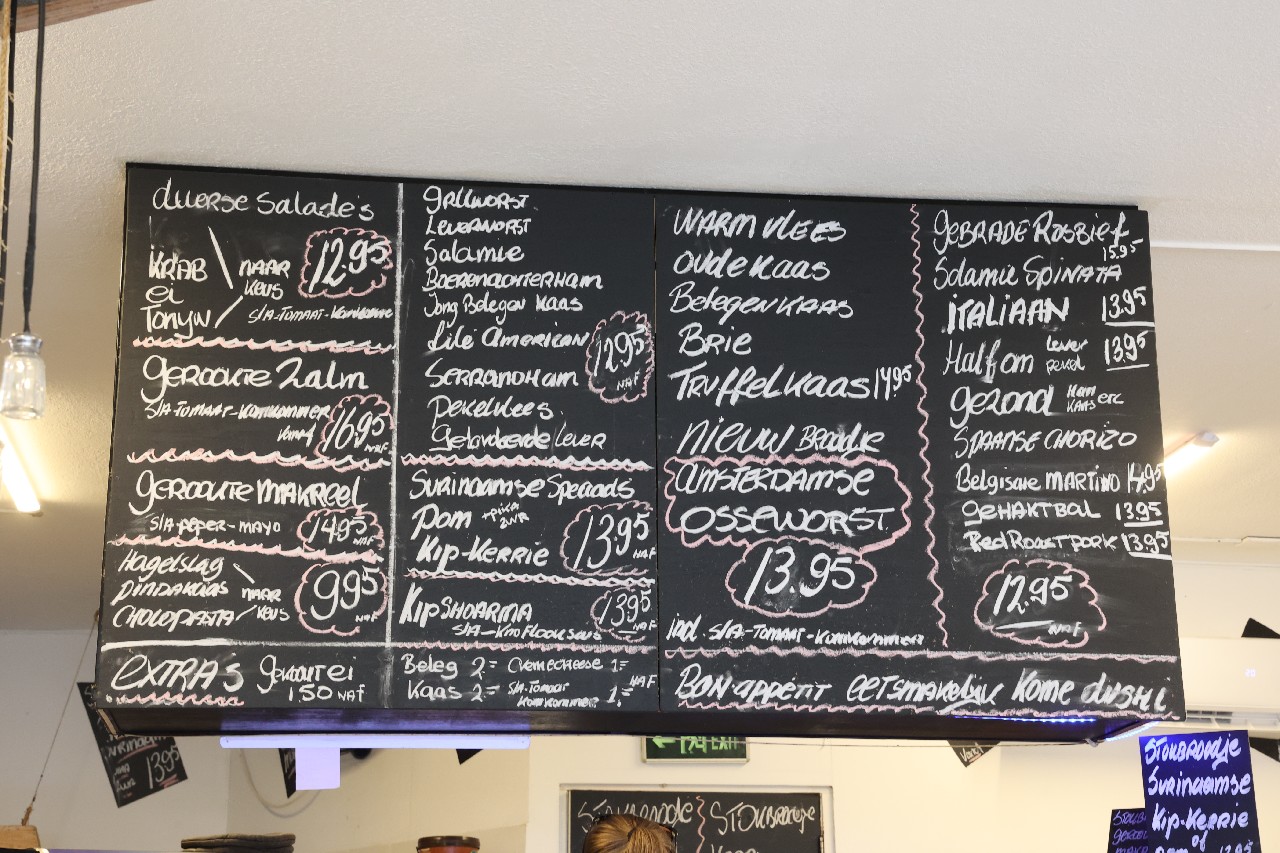 diverse salade's
KRAB
ei
Tonijn
NAAR
Keus
12.95
SlA-TOMAAT-Komkommer
gerookte Zalm
SlA-TOMAAT-Komkommer
16.95
NAF
gerookte MAKREEL
SlA-peper-MAYO
14.95
NAF
Hagelslag
Pindakaas
CHOCOPASTA
NAAR
keus
9.95
NAF
EXTRA'S gekookt ei
1.50 NAF
grillworst
Leverworst
Salamie
Boerenachterham
Jong Belegen Kaas
Filé American
12.95
NAF
Serranoham
Pekelvlees
Gebraden Lever
Surinaamse Speciaals
Pom
+pika
zuur
Kip-Kerrie
13.95
NAF
Kip SHOARMA
13.95
NAF
Beleg 2= Cremecheese 1=
NAF
Kaas 2= SlA-Tomaat
komkommer 1=
WARM VLEES
OUDE KAAS
Belegen KAAS
BRIE
TRUFFELKAAS 14.95
NIEUW BROODJE
AMSTERDAMSE
OSSEWORST
13.95
incl. SlA-TOMAAT-KOMKOMMER
GEBRADE ROSBIEf
15.95
Salamie SPINATA
ITALIAAN 13.95
Halfom Lever
pekel
13.95
gezond Ham
KAAS
erc
SPAANSE CHORIZO
Belgische MARTINO 14.95
GEHAKTBAL 13.95
Red Roast PORK 13.95
12.95
NAF
BON appétit EETSMAKELIJK Kome dushi
13.95
EXIT
STOKBROODJE
STOKBROODJE
STOKBROODJE
Surinaamse
Kip-Kerrie
of
POM